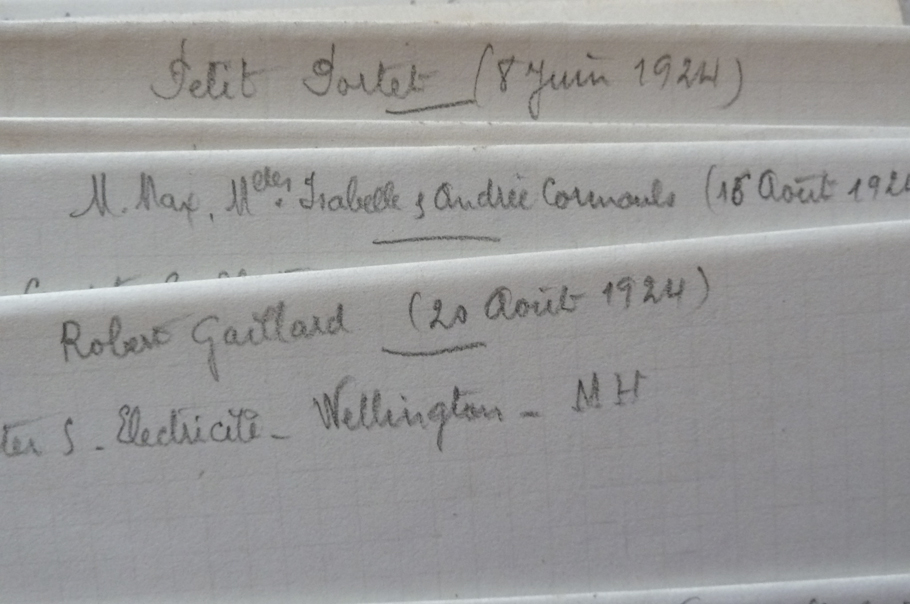 Petit Portet (8 Juin 1924)
M. Max, Mdes. Isabelle & Andrée Cormouls (16 Août 192
Robert Gaillard (20 Août 1924)
ter S - Electricité - Wellington - MH